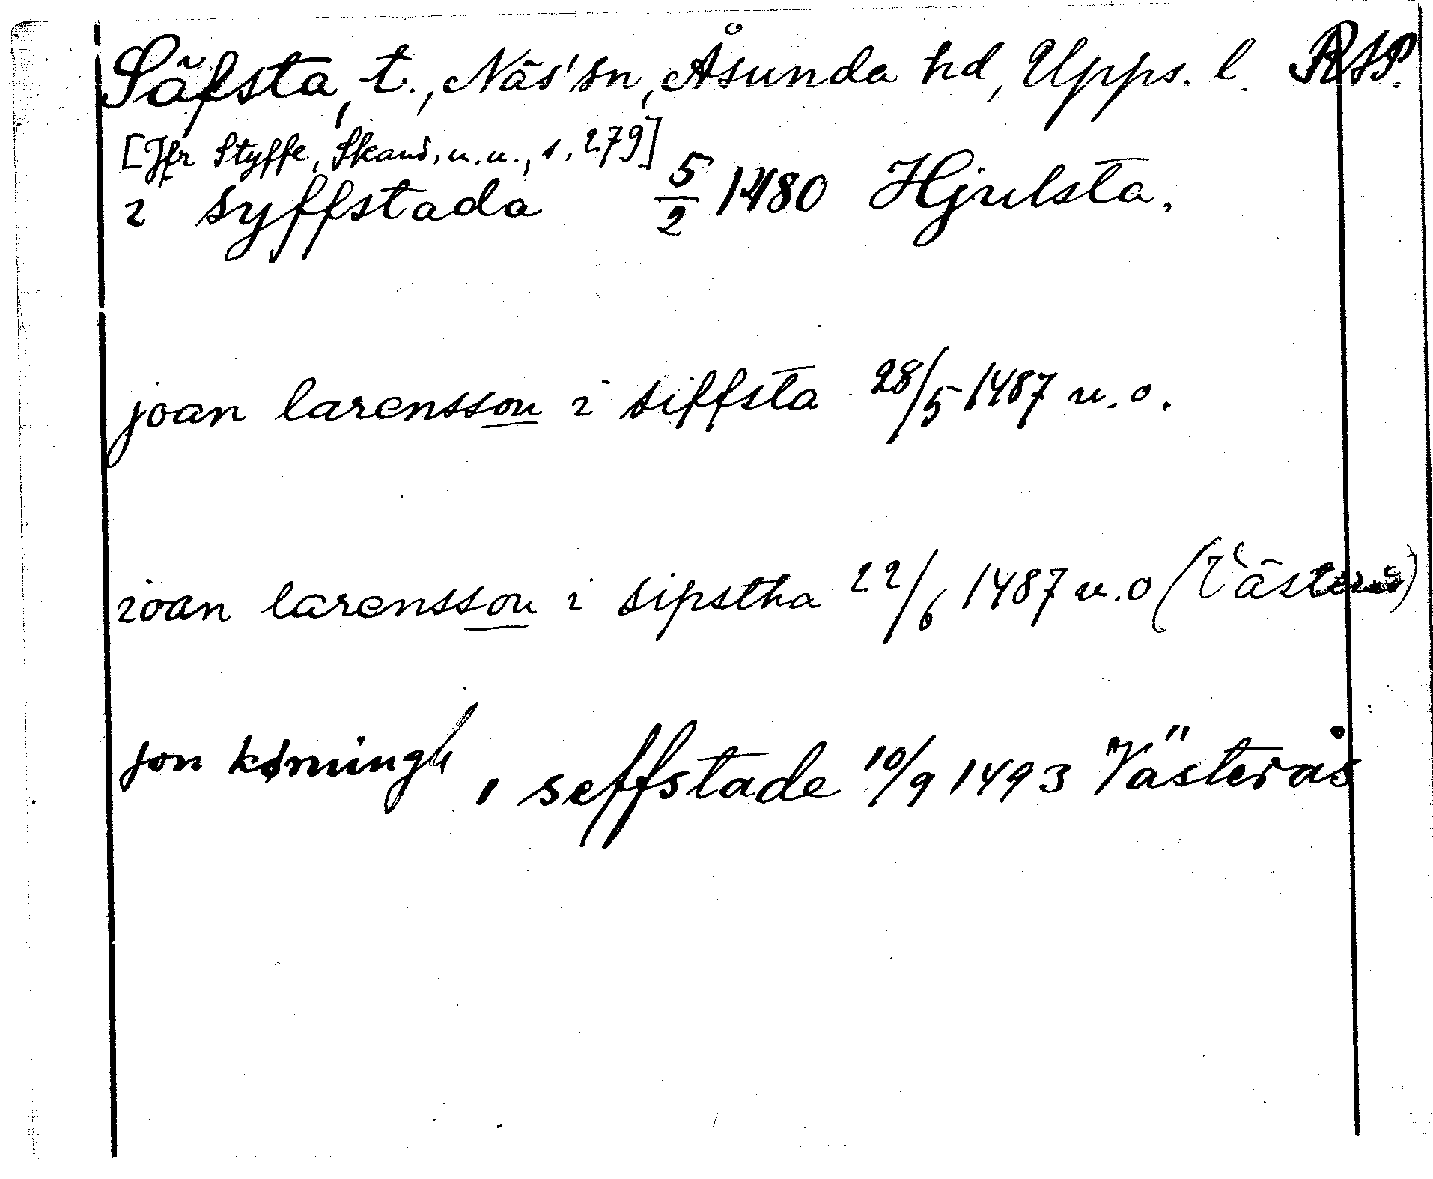 Säfsta, t., Näs' sn, Åsunda hd, Upps. l. RAP.
[Jfr Styffe, Skand. u. u., s. 279]
i syffstada 5/2 1480 Hjulsta.
joan larensson i siffsta 28/5 1487 u. o.
ioan larensson i sipstha 22/6 1487 u. o (Västerås)
jon koningh i seffstade 10/9 1493 Västerås